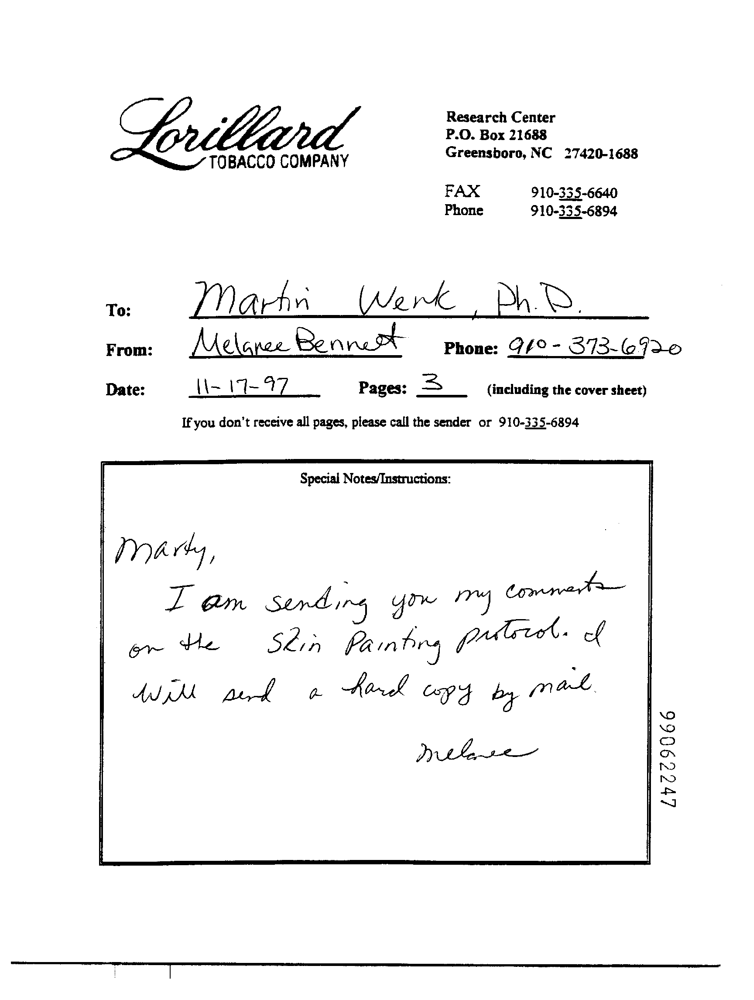 Lorillard
TOBACCO COMPANY
Research Center
P.O. Box 21688
Greensboro, NC 27420-1688
FAX 910-335-6640
Phone 910-335-6894
To: Martin Wenk, Ph.D.
From: Melanee Bennett Phone: 910-373-6920
Date: 11-17-97 Pages: 3 (including the cover sheet)
If you don't receive all pages, please call the sender or 910-335-6894
Special Notes/Instructions:
Marty,
I am sending you my comments
on the Skin Painting protocol. I
will send a hard copy by mail.
Melanee
99062247